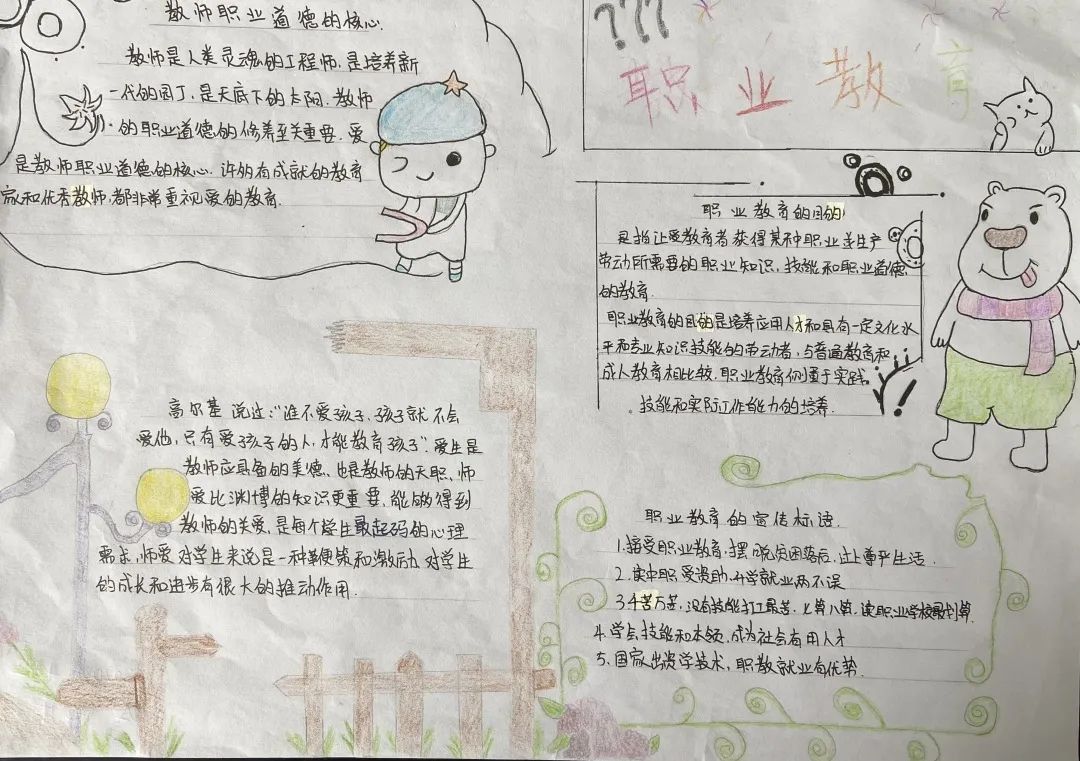 教师职业道德的核心
教师是人类灵魂的工程师,是培养新
一代的园丁,是天底下的太阳.教师
的职业道德的修养至关重要.爱
是教师职业道德的核心.许多有成就的教育
家和优秀教师,都非常重视爱的教育.
???
职业教育
职业教育的目的
是指让受教育者获得某种职业或生产
劳动所需要的职业知识,技能和职业道德
的教育.
职业教育的目的是培养应用人才和具有一定文化水
平和专业知识技能的劳动者,与普通教育和
成人教育相比较.职业教育侧重于实践
技能和实际工作能力的培养.
高尔基说过:"谁不爱孩子、孩子就不会
爱他,只有爱孩子的人,才能教育孩子".爱生是
教师应具备的美德、也是教师的天职、师
爱比渊博的知识更重要,能够得到
教师的关爱,是每个学生最起码的心理
需求,师爱对学生来说是一种鞭策和激励.对学生
的成长和进步有很大的推动作用.
职业教育的宣传标语.
1.接受职业教育.摆脱贫困落后,过上尊严生活.
2.读中职受资助.升学就业两不误
3.千苦万苦,没有技能打工最苦.七算八算.读职业学校最划算.
4.学会技能和本领.成为社会有用人才
5.国家出资学技术,职教就业有优势.